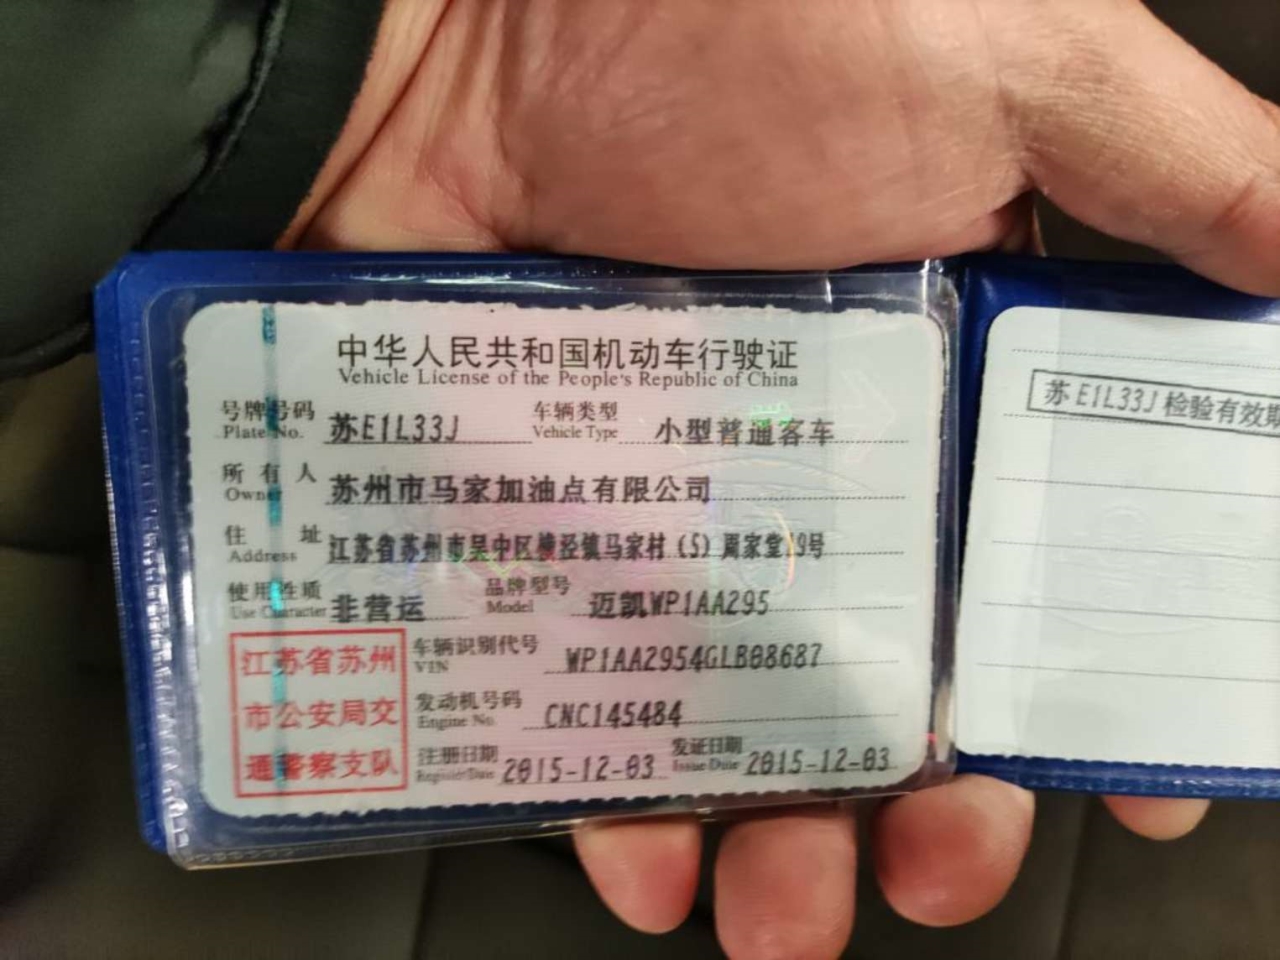 中华人民共和国机动车行驶证
Vehicle License of the People's Republic of China
号牌号码 苏E1L33J 车辆类型 小型普通客车
Plate No. Vehicle Type
所有人 苏州市马家加油点有限公司
Owner
住址 江苏省苏州市吴中区横泾镇马家村(5)周家堂 9号
Address
使用性质 非营运 品牌型号 迈凯WP1AA295
Use Character Model
江苏省苏州
市公安局交
通警察支队
车辆识别代号 WP1AA2954GLB08687
VIN
发动机号码 CNC145484
Engine No.
注册日期 2015-12-03 发证日期 2015-12-03
Register Date Issue Date
苏E1L33J检验有效期